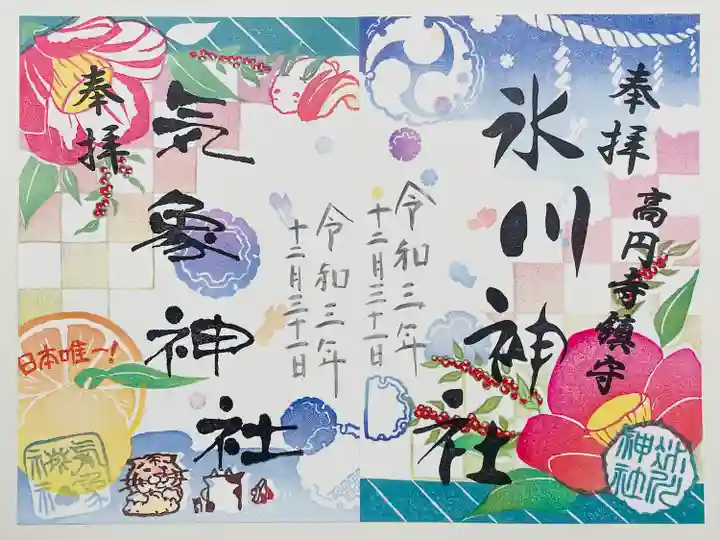 奉拝
高円寺鎮守
氷川神社
令和三年
十二月三十一日
氷川
神社
奉拝
気象神社
令和三年
十二月三十一日
日本唯一!
気象
神社